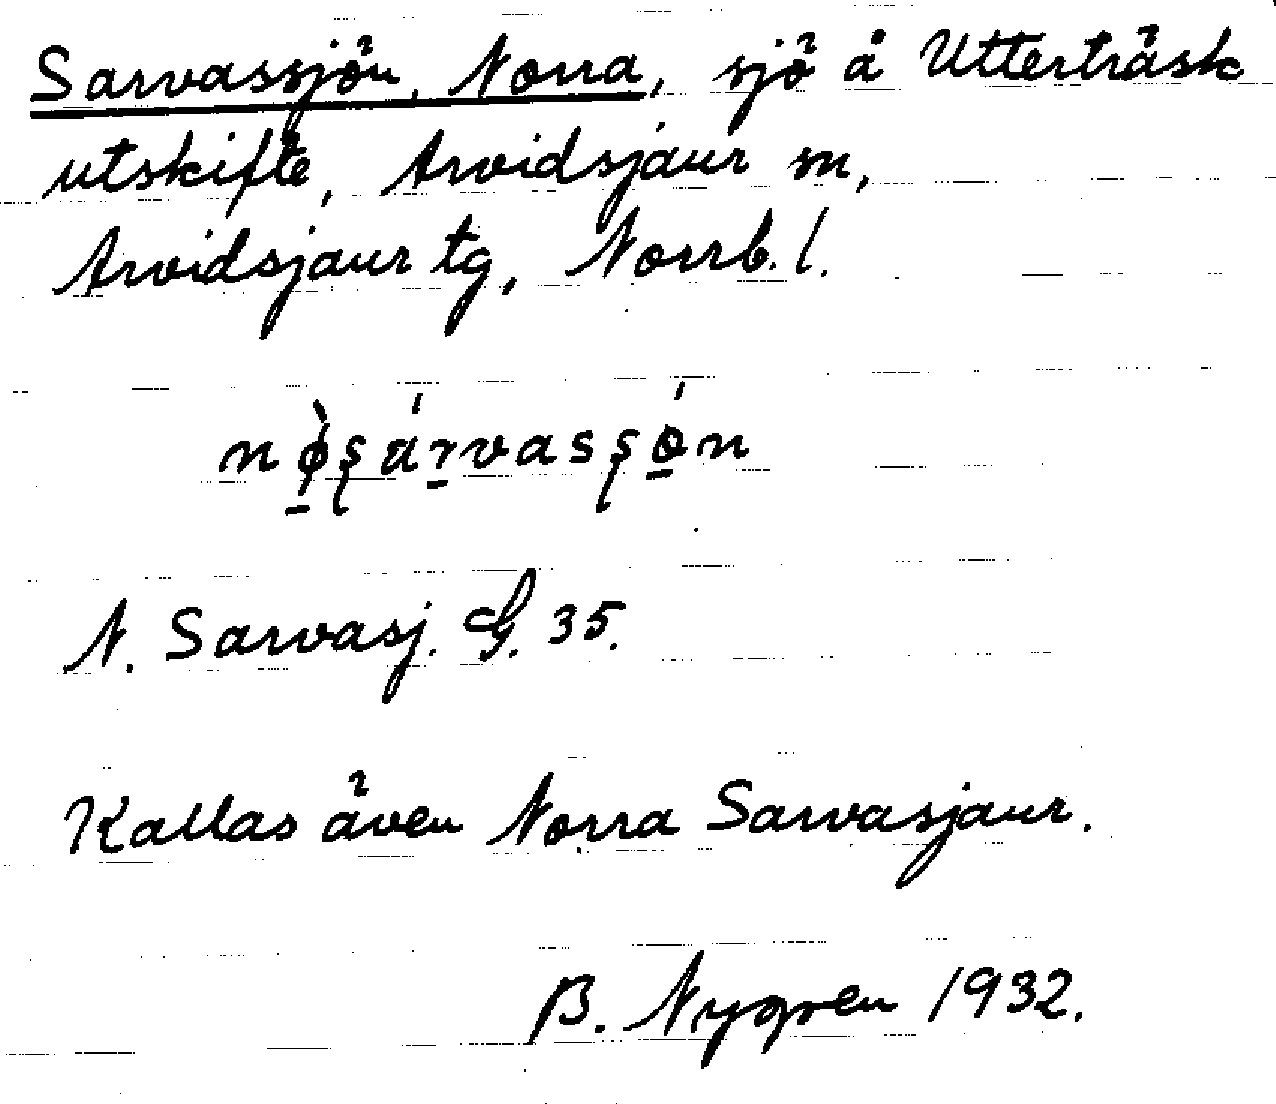 Sarvassjön, Norra, sjö å Utterträsk
utskifte, Arvidsjaur sn,
Arvidsjaur tg, Norrb. l.
N. Sarvasj. G. 35.
Kallas även Norra Sarvasjaur.
B. Nygren 1932.